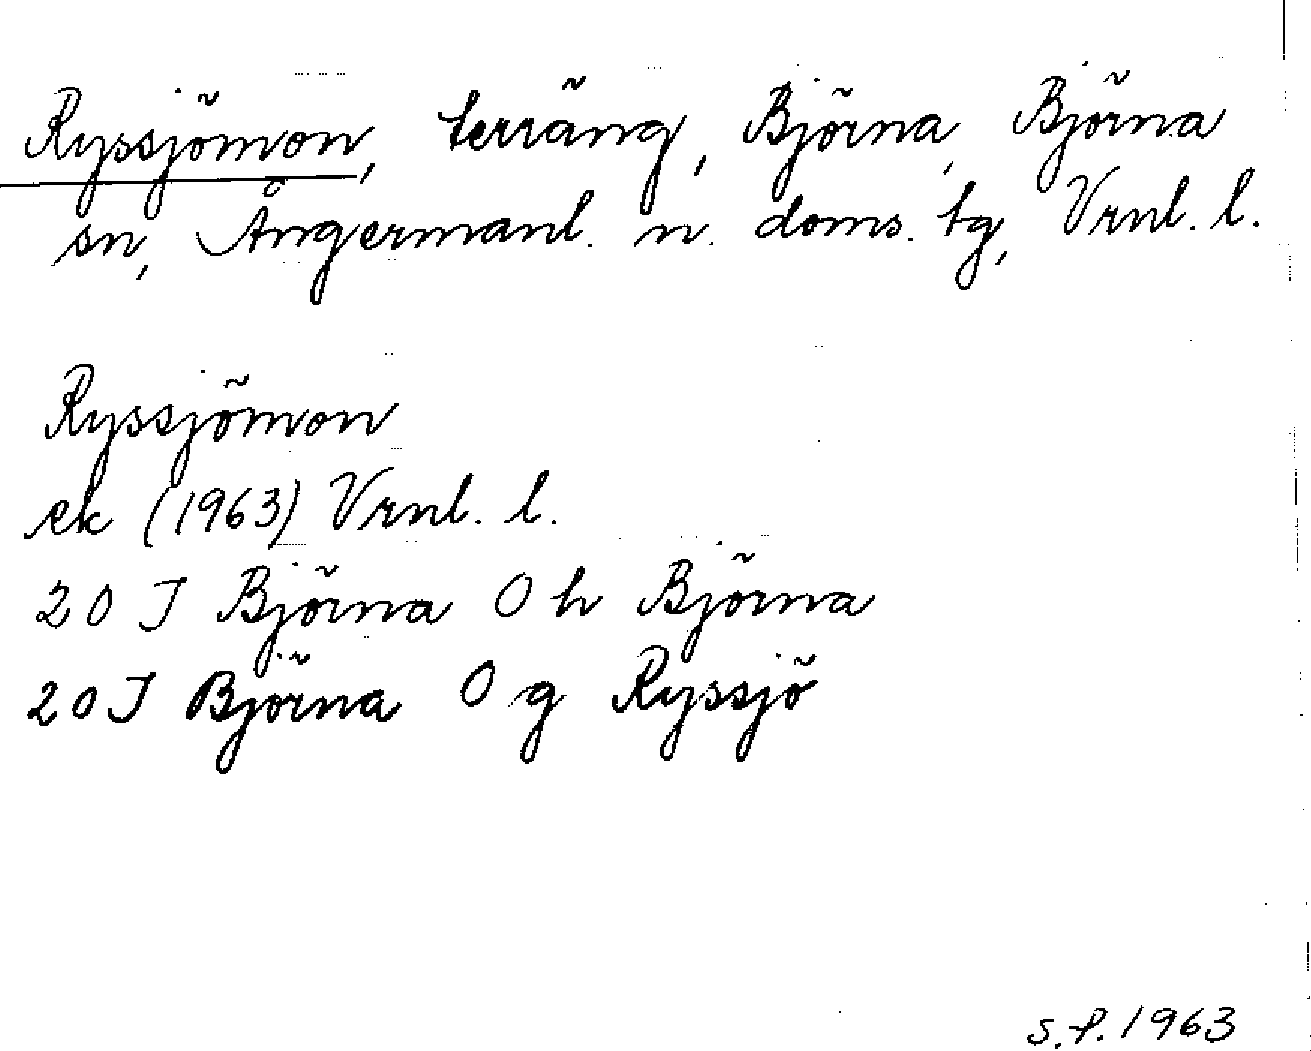 Ryssjömon, terräng, Björna, Björna
sn, Ångermanl. n. doms. tg, Vrnl. l.
Ryssjömon
ek (1963) Vrnl. l.
20 I Björna 0 h Björna
20 I Björna 0 g Ryssjö
S.P. 1963